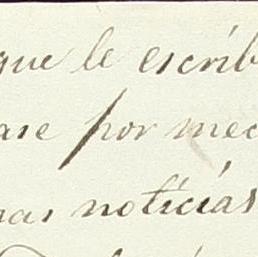 que le escrib
ase por mec
nas notícias